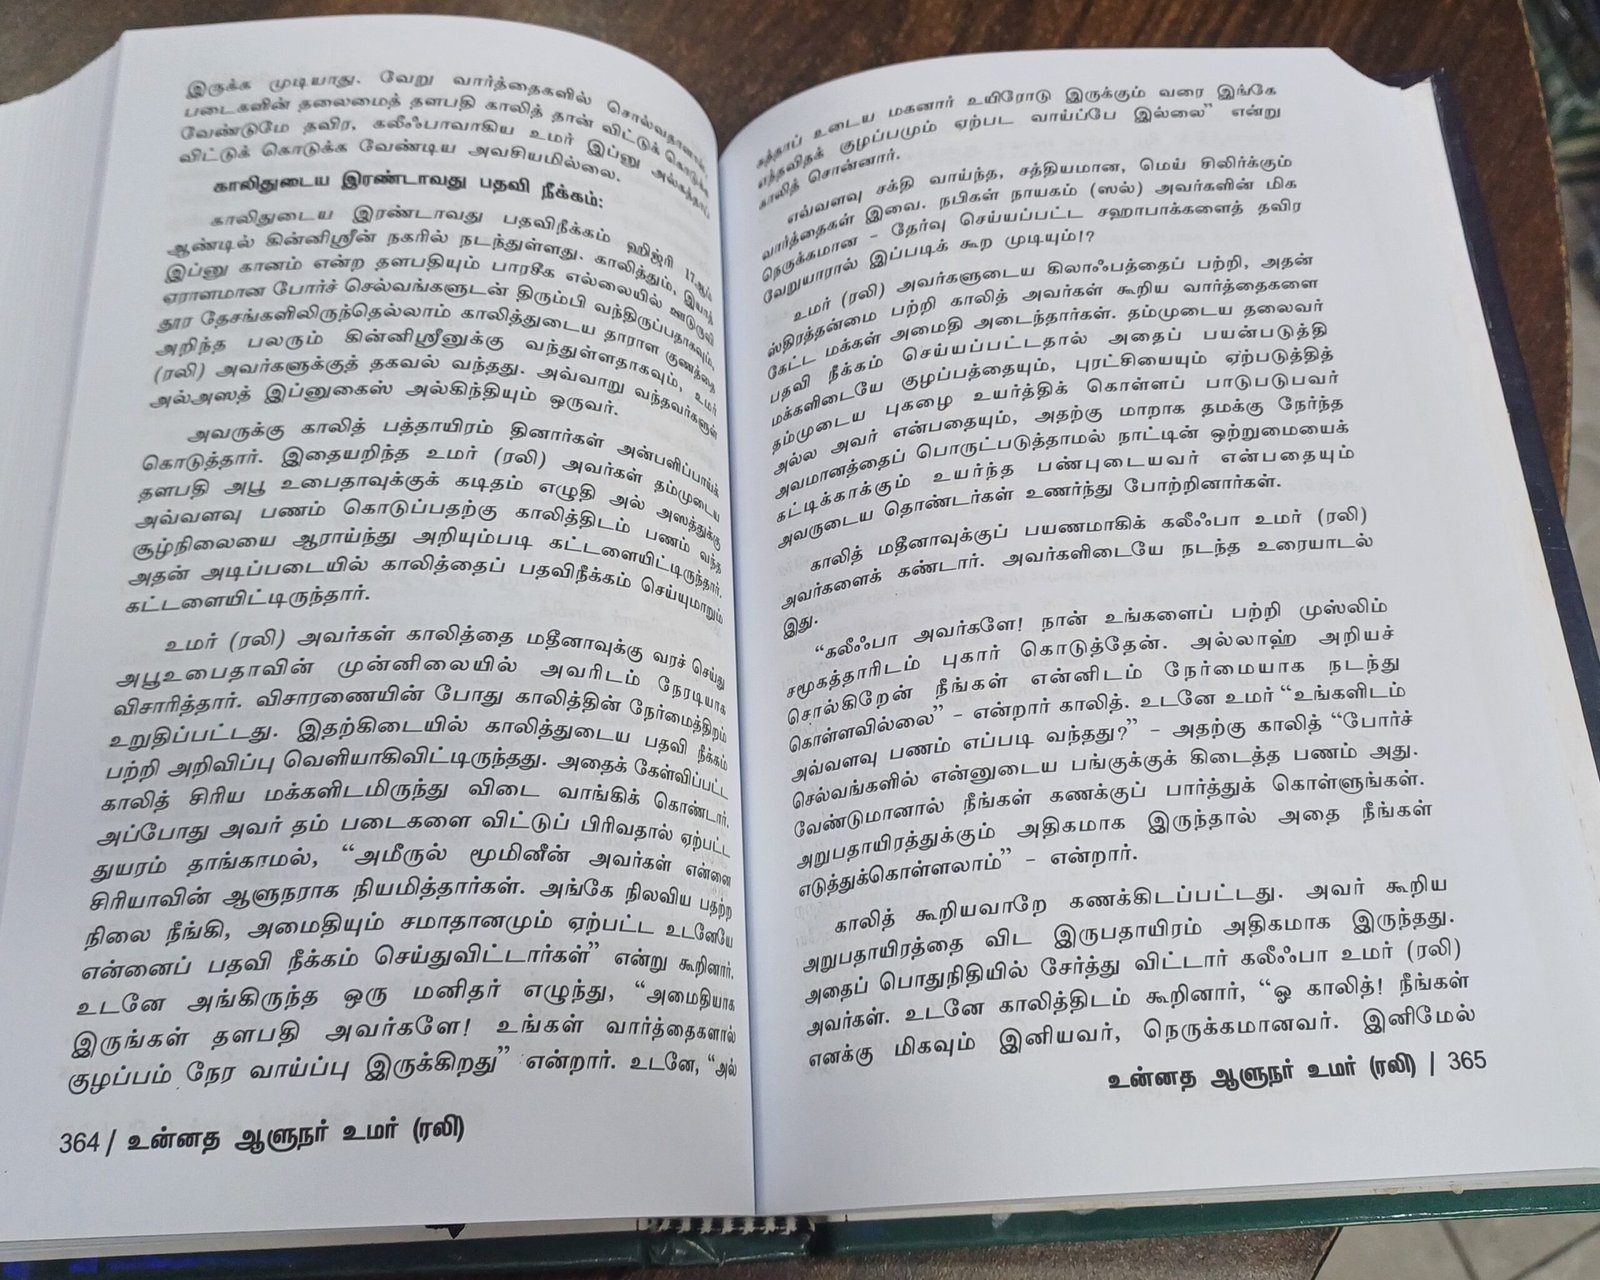 இருக்க முடியாது. வேறு வார்த்தைகளில் சொல்வதானால்,
படைகளின் தலைமைத் தளபதி காலித் தான் விட்டுக் கொடுக்க
வேண்டுமே தவிர, கலீஃபாவாகிய உமர் இப்னு அல்கத்தாப்
விட்டுக் கொடுக்க வேண்டிய அவசியமில்லை.
காலிதுடைய இரண்டாவது பதவி நீக்கம்:
காலிதுடைய இரண்டாவது பதவிநீக்கம் ஹிஜ்ரி 17ஆம்
ஆண்டில் கின்னிஸ்ரீன் நகரில் நடந்துள்ளது. காலித்தும், இயாத்
இப்னு கானம் என்ற தளபதியும் பாரசீக எல்லையில் ஊடுருவி
ஏராளமான போர்ச் செல்வங்களுடன் திரும்பி வந்திருப்பதாகவும்,
தூர தேசங்களிலிருந்தெல்லாம் காலித்துடைய தாராள குணத்தை
அறிந்த பலரும் கின்னிஸ்ரீனுக்கு வந்துள்ளதாகவும், உமர்
(ரலி) அவர்களுக்குத் தகவல் வந்தது. அவ்வாறு வந்தவர்களுள்
அல்அஸத் இப்னுகைஸ் அல்கிந்தியும் ஒருவர்.
அவருக்கு காலித் பத்தாயிரம் தினார்கள் அன்பளிப்பாய்க்
கொடுத்தார். இதையறிந்த உமர் (ரலி) அவர்கள் தம்முடைய
தளபதி அபூ உபைதாவுக்குக் கடிதம் எழுதி அல் அஸத்துக்கு
அவ்வளவு பணம் கொடுப்பதற்கு காலித்திடம் பணம் வந்த
சூழ்நிலையை ஆராய்ந்து அறியும்படி கட்டளையிட்டிருந்தார்.
அதன் அடிப்படையில் காலித்தைப் பதவிநீக்கம் செய்யுமாறும்
கட்டளையிட்டிருந்தார்.
உமர் (ரலி) அவர்கள் காலித்தை மதீனாவுக்கு வரச் செய்து
அபூஉபைதாவின் முன்னிலையில் அவரிடம் நேரடியாக
விசாரித்தார். விசாரணையின் போது காலித்தின் நேர்மைத்திறம்
உறுதிப்பட்டது. இதற்கிடையில் காலித்துடைய பதவி நீக்கம்
பற்றி அறிவிப்பு வெளியாகிவிட்டிருந்தது. அதைக் கேள்விப்பட்ட
காலித் சிரிய மக்களிடமிருந்து விடை வாங்கிக் கொண்டார்.
அப்போது அவர் தம் படைகளை விட்டுப் பிரிவதால் ஏற்பட்ட
துயரம் தாங்காமல், “அமீருல் மூமினீன் அவர்கள் என்னை
சிரியாவின் ஆளுநராக நியமித்தார்கள். அங்கே நிலவிய பதற்ற
நிலை நீங்கி, அமைதியும் சமாதானமும் ஏற்பட்ட உடனேயே
என்னைப் பதவி நீக்கம் செய்துவிட்டார்கள்” என்று கூறினார்.
உடனே அங்கிருந்த ஒரு மனிதர் எழுந்து, “அமைதியாக
இருங்கள் தளபதி அவர்களே! உங்கள் வார்த்தைகளால்
குழப்பம் நேர வாய்ப்பு இருக்கிறது” என்றார். உடனே, “அல்
364 / உன்னத ஆளுநர் உமர் (ரலி)
கத்தாப் உடைய மகனார் உயிரோடு இருக்கும் வரை இங்கே
எந்தவிதக் குழப்பமும் ஏற்பட வாய்ப்பே இல்லை” என்று
காலித் சொன்னார்.
எவ்வளவு சக்தி வாய்ந்த, சத்தியமான, மெய் சிலிர்க்கும்
வார்த்தைகள் இவை. நபிகள் நாயகம் (ஸல்) அவர்களின் மிக
நெருக்கமான – தேர்வு செய்யப்பட்ட சஹாபாக்களைத் தவிர
வேறுயாரால் இப்படிக் கூற முடியும்!?
உமர் (ரலி) அவர்களுடைய கிலாஃபத்தைப் பற்றி, அதன்
ஸ்திரத்தன்மை பற்றி காலித் அவர்கள் கூறிய வார்த்தைகளை
கேட்ட மக்கள் அமைதி அடைந்தார்கள். தம்முடைய தலைவர்
பதவி நீக்கம் செய்யப்பட்டதால் அதைப் பயன்படுத்தி
மக்களிடையே குழப்பத்தையும், புரட்சியையும் ஏற்படுத்தித்
தம்முடைய புகழை உயர்த்திக் கொள்ளப் பாடுபடுபவர்
அல்ல அவர் என்பதையும், அதற்கு மாறாக தமக்கு நேர்ந்த
அவமானத்தைப் பொருட்படுத்தாமல் நாட்டின் ஒற்றுமையைக்
கட்டிக்காக்கும் உயர்ந்த பண்புடையவர் என்பதையும்
அவருடைய தொண்டர்கள் உணர்ந்து போற்றினார்கள்.
காலித் மதீனாவுக்குப் பயணமாகிக் கலீஃபா உமர் (ரலி)
அவர்களைக் கண்டார். அவர்களிடையே நடந்த உரையாடல்
இது.
“கலீஃபா அவர்களே! நான் உங்களைப் பற்றி முஸ்லிம்
சமூகத்தாரிடம் புகார் கொடுத்தேன். அல்லாஹ் அறியச்
சொல்கிறேன் நீங்கள் என்னிடம் நேர்மையாக நடந்து
கொள்ளவில்லை” – என்றார் காலித். உடனே உமர் “உங்களிடம்
அவ்வளவு பணம் எப்படி வந்தது?” – அதற்கு காலித் “போர்ச்
செல்வங்களில் என்னுடைய பங்குக்குக் கிடைத்த பணம் அது.
வேண்டுமானால் நீங்கள் கணக்குப் பார்த்துக் கொள்ளுங்கள்.
அறுபதாயிரத்துக்கும் அதிகமாக இருந்தால் அதை நீங்கள்
எடுத்துக்கொள்ளலாம்” – என்றார்.
காலித் கூறியவாறே கணக்கிடப்பட்டது. அவர் கூறிய
அறுபதாயிரத்தை விட இருபதாயிரம் அதிகமாக இருந்தது.
அதைப் பொதுநிதியில் சேர்த்து விட்டார் கலீஃபா உமர் (ரலி)
அவர்கள். உடனே காலித்திடம் கூறினார், “ஓ காலித்! நீங்கள்
எனக்கு மிகவும் இனியவர், நெருக்கமானவர். இனிமேல்
உன்னத ஆளுநர் உமர் (ரலி) | 365